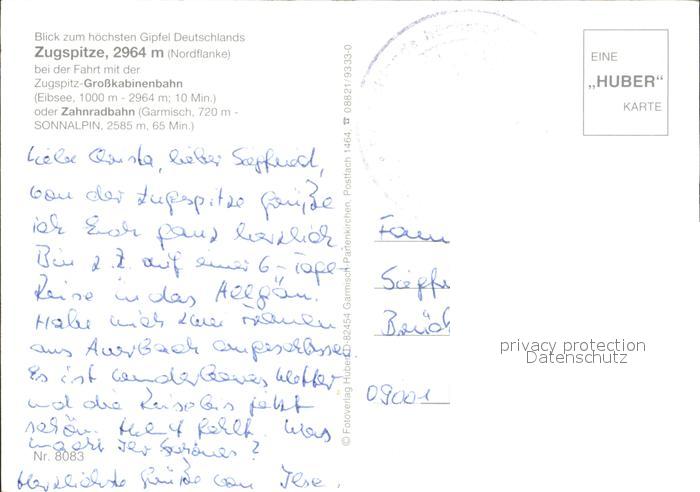 Blick zum höchsten Gipfel Deutschlands
Zugspitze, 2964 m (Nordflanke)
bei der Fahrt mit der
Zugspitz-Großkabinenbahn
(Eibsee, 1000 m - 2964 m; 10 Min.)
oder Zahnradbahn (Garmisch, 720 m -
SONNALPIN, 2585 m, 65 Min.)
Liebe Christa, lieber Siegfried,
von der Zugspitze grüße
ich Euch ganz herzlich.
Bin z.Z. auf einer 6-Tage-
Reise in das Allgäu.
Habe mich zwei Frauen
aus Auerbach angeschlossen.
Es ist wunderbares Wetter
und die Reise bis jetzt
schön. fehlt. Was
macht Ihr Schönes?
Nr. 8083
Herzlichste Grüße von Ilse.
© Fotoverlag Huber, D-82454 Garmisch-Partenkirchen, Postfach 1464, ☎ 08821/9333-0
EINE
„HUBER"
KARTE
Fam
Siegfr
Brück
09001
privacy protection
Datenschutz